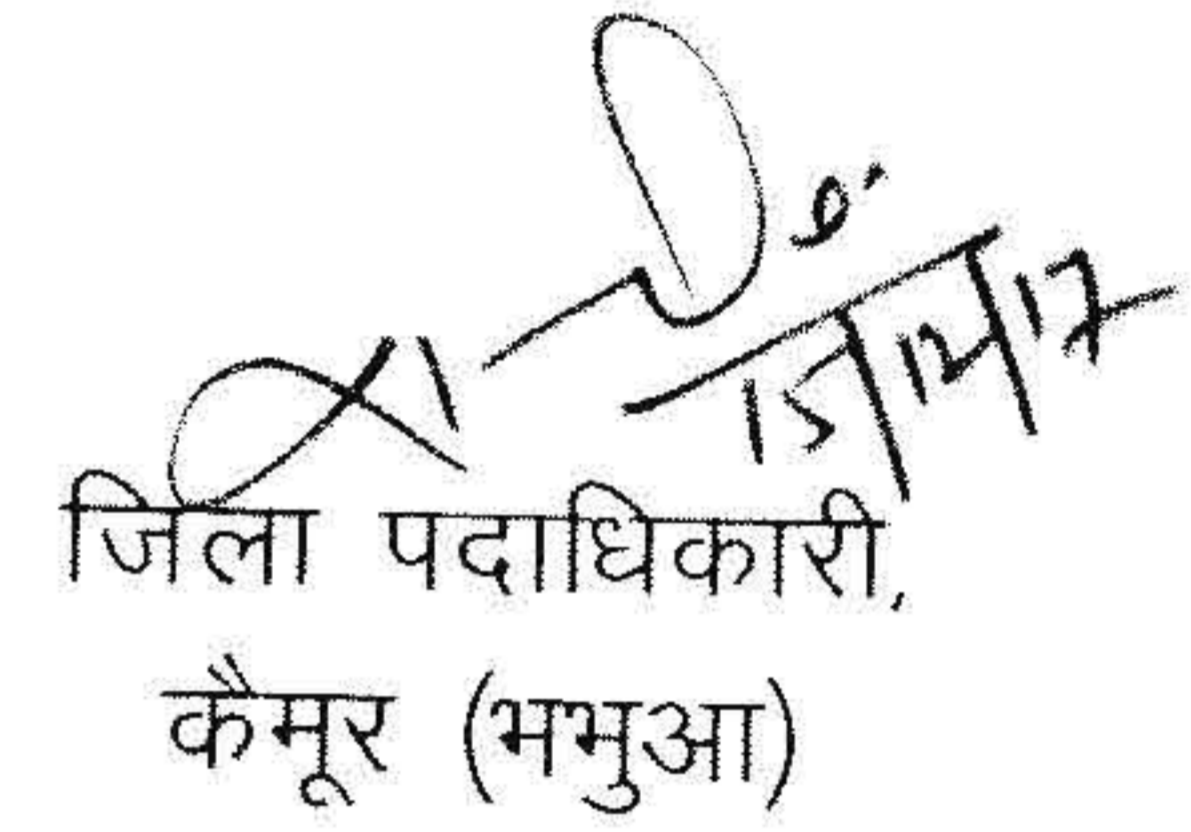 15/12/17
जिला पदाधिकारी,
कैमूर (भभुआ)